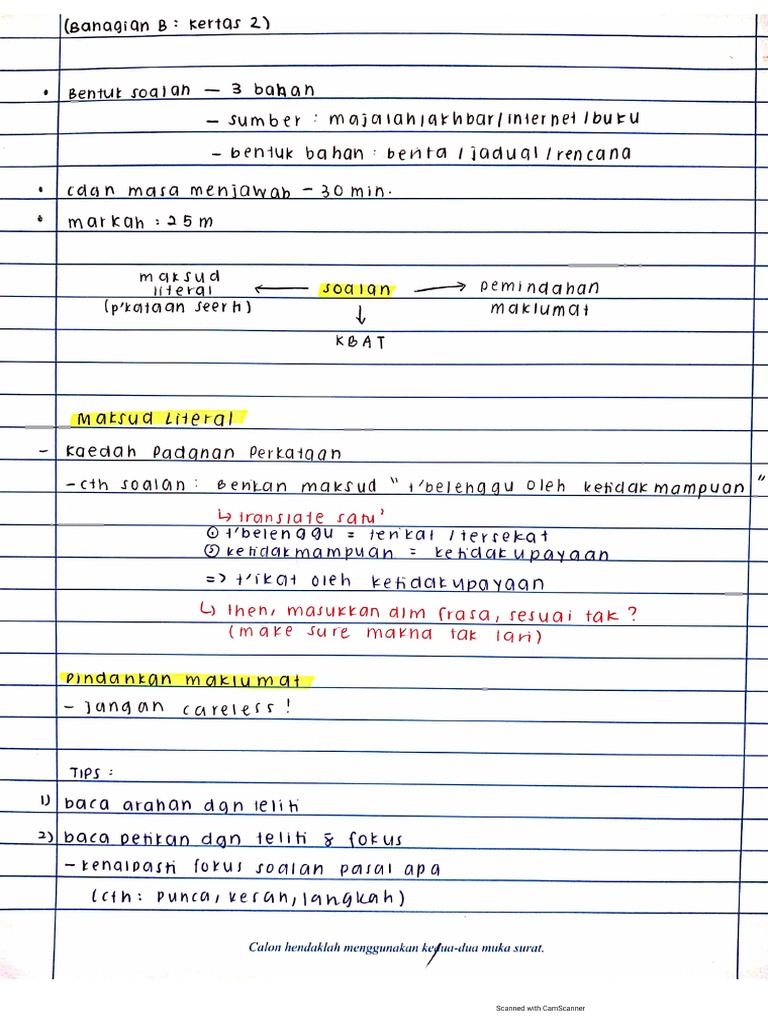 (Banagian B : Kertas 2)
• Bentuk soalan — 3 bahan
– sumber : majalah/akhbar/internet/buku
– bentuk bahan : berita / jadual / rencana
• cdan masa menjawab – 30 min.
• markah : 25 m
maksud literal (p'kataan seerh) ← soalan → pemindahan maklumat
↓
KBAT
Maksud Literal
– Kaedah Padanan Perkataan
– cth soalan : Berikan maksud " t'belenggu oleh ketidakmampuan "
↳ translate satu'
① t'belenggu = terikat / tersekat
② ketidakmampuan = ketidakupayaan
=> t'ikat oleh ketidakupayaan
↳ then, masukkan dlm frasa, sesuai tak ?
(make sure makna tak lari)
Pindahkan maklumat
– jangan careless !
TIPS :
1) baca arahan dgn teliti
2) baca petikan dgn teliti & fokus
– kenalpasti fokus soalan pasal apa
(cth: punca, kesan, langkah)
Calon hendaklah menggunakan kedua-dua muka surat.
Scanned with CamScanner